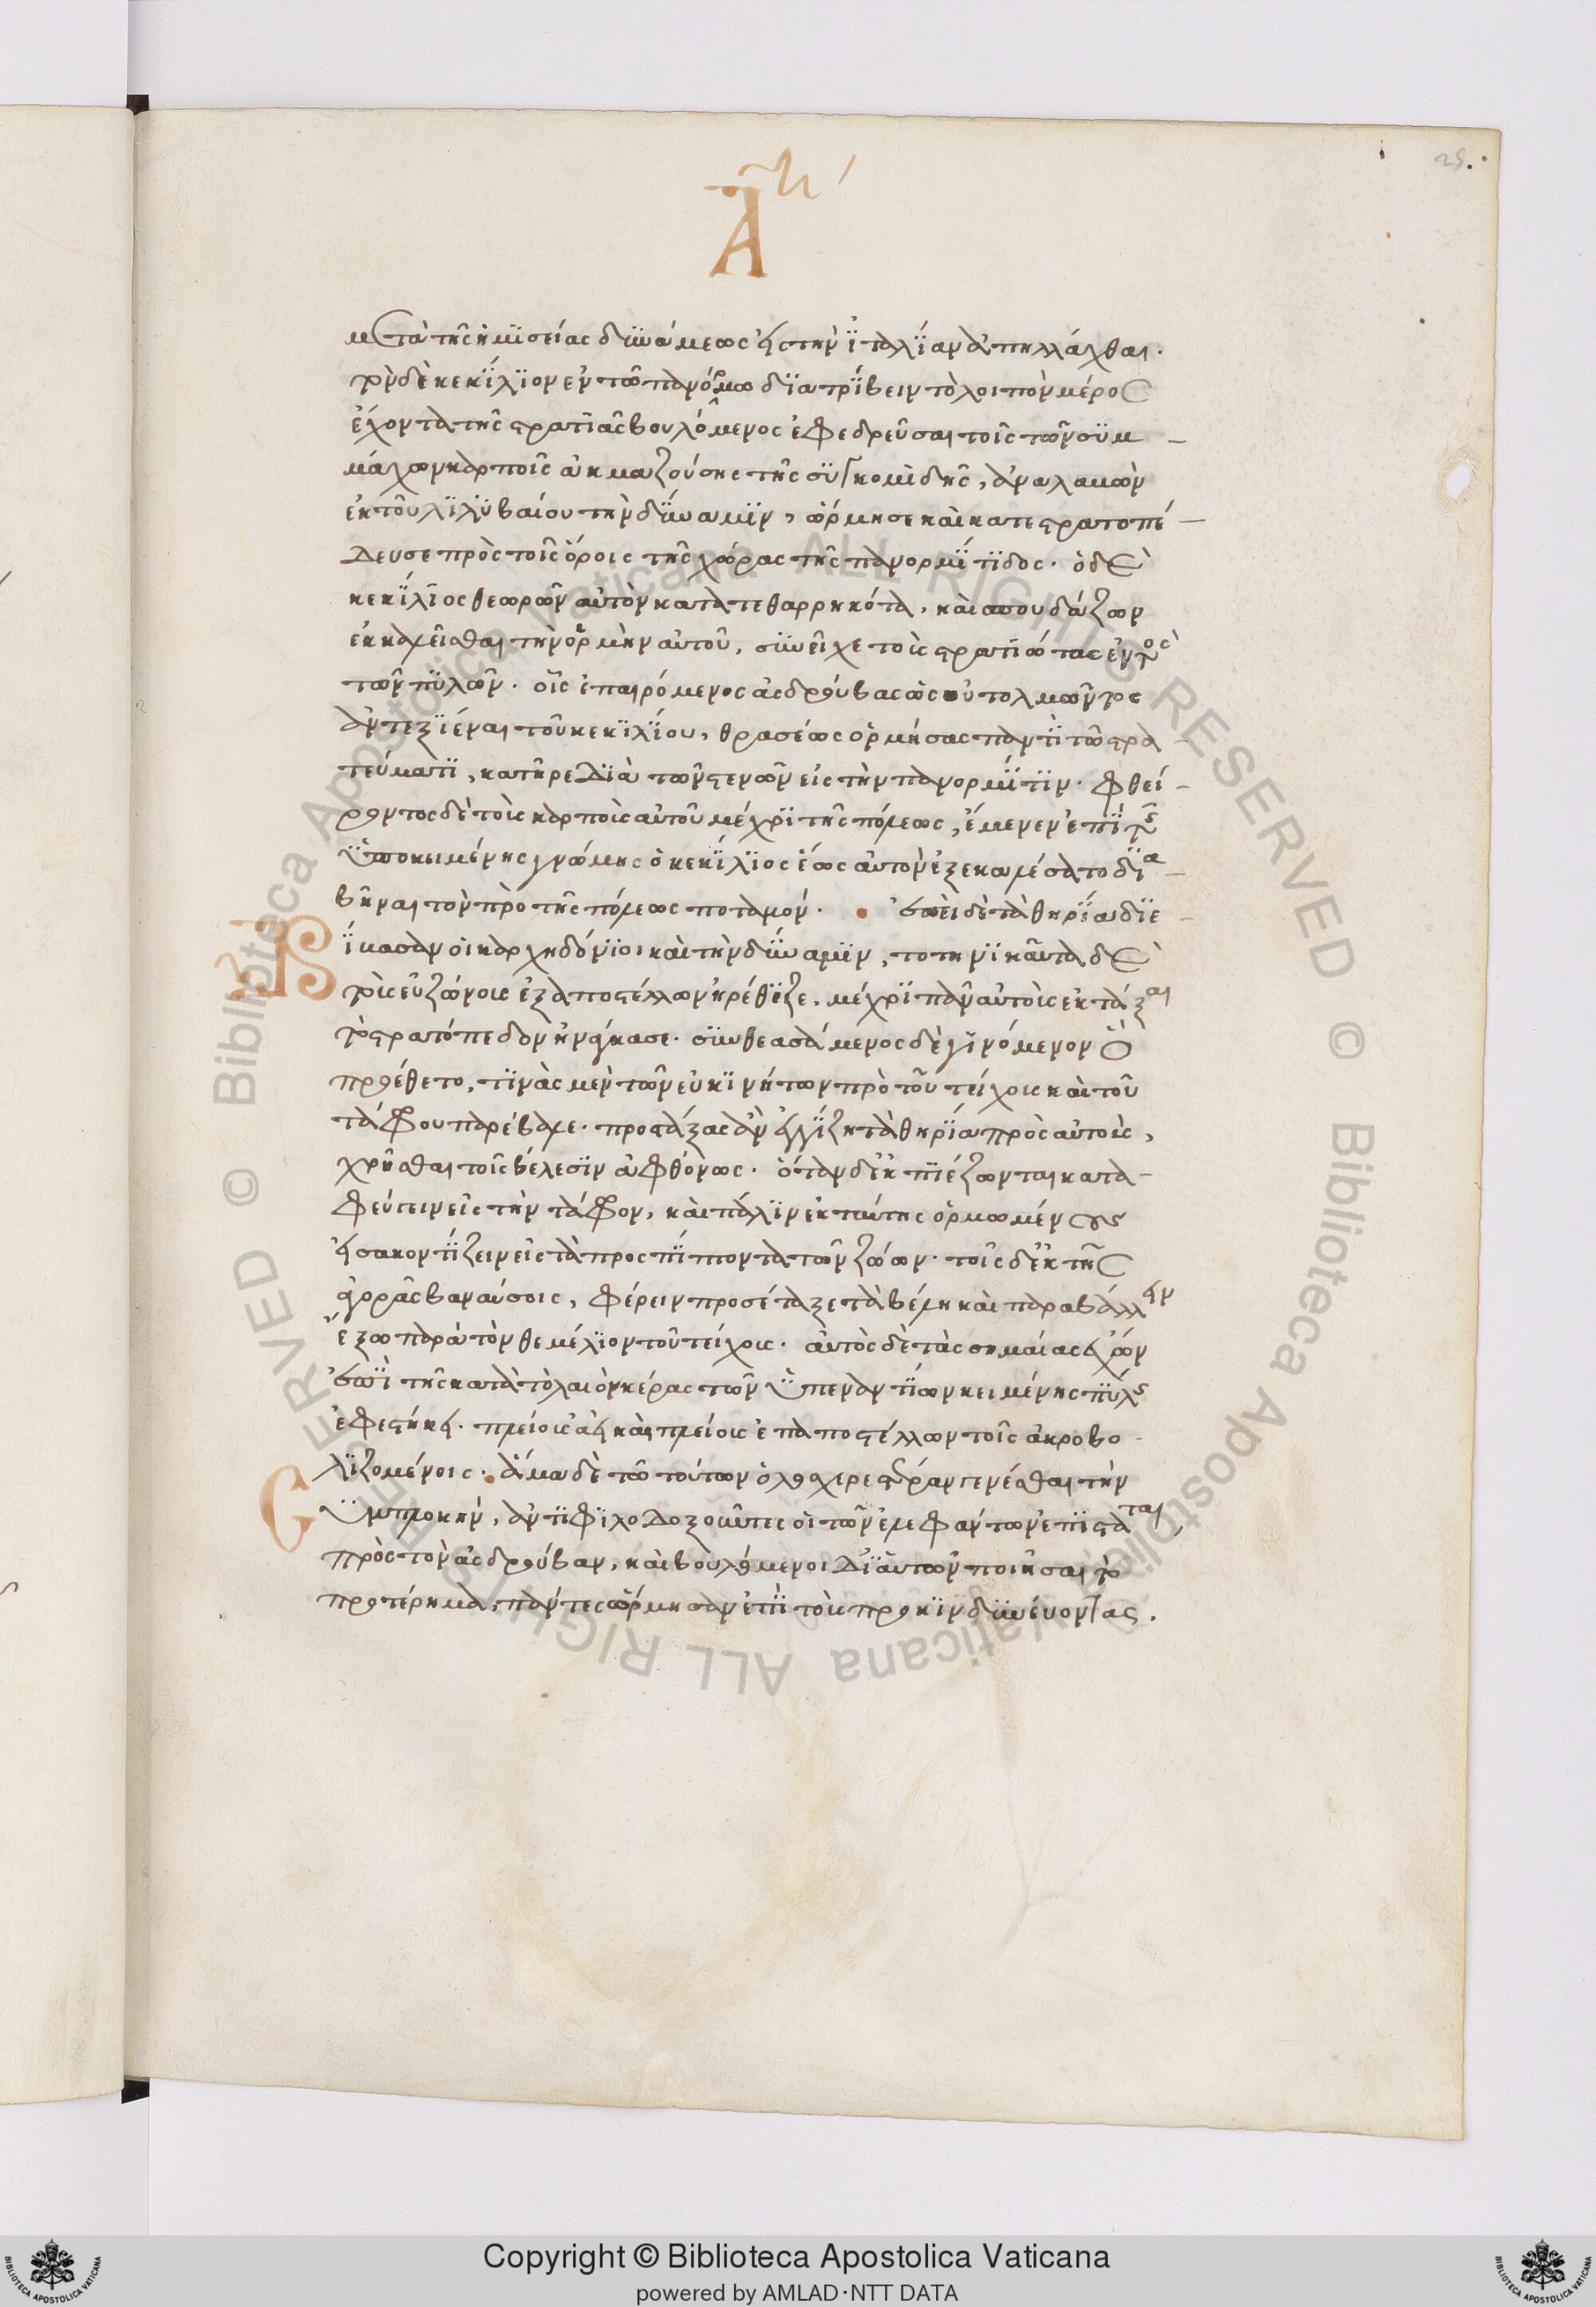 25.
Α
μετὰ τῆς ἡμϊσείας δϋνάμεως εἰς τὴν ϊταλϊαν ἀπηλλάχθαι·
τὸν δὲ κεκϊλϊον ἐν τῶ πανόρμω δϊατρϊβειν τὸ λοιπὸν μέρος
ἔχοντα τῆς στρατιᾶς βουλόμενος ἐφεδρεῦσαι τοῖς τῶν σϋμ
μάχων καρποῖς ἀκμαζούσης τῆς σϋγκομιδῆς, ἀναλαβὼν
ἐκ τοῦ λϊλϋβαίου τὴν δύναμϊν, ὥρμησε καὶ κατεστρατοπέ
δευσε πρὸς τοῖς ὅροις τῆς χώρας τῆς πανορμϊτϊδος· ὁ δὲ
κεκίλϊος θεωρῶν αὐτὸν κατατεθαρρηκότα, καὶ σπουδάζων
ἐκκαλεῖσθαι τὴν ὁρμὴν αὐτοῦ, σϋνεῖχε τοὺς στρατϊώτας ἐντὸς
τῶν πϋλῶν· οἷς ἐπαιρόμενος ἀσδρούβας ὡς οὐ τολμῶντος
ἀντεξϊέναι τοῦ κεκϊλϊου, θρασέως ὁρμήσας παντὶ τῶ στρα
τεύματϊ, κατῆρε διὰ τῶν στενῶν εἰς τὴν πανορμῖτϊν· φθεί
ροντος δὲ τοὺς καρποὺς αὐτοῦ μέχρϊ τῆς πόλεως, ἔμενεν ἐπὶ τῆς
ϋποκειμένης γνώμης ὁ κεκίλϊος ἕως αὐτὸν ἐξεκαλέσατο δϊα
βῆναι τὸν πρὸ τῆς πόλεως ποταμόν· ἐπεὶ δὲ τὰ θηρϊα δϊε
βϊβασαν οἱ καρχηδόνϊοι καὶ τὴν δύναμϊν, τοτηνϊκαῦτα δὲ
τοὺς εὐζώνους ἐξαποστέλλων ἠρέθϊζε, μέχρϊ πᾶν αὐτοὺς ἐκτάξαι
τὸ στρατόπεδον ἠνάγκασε· σϋνθεασάμενος δὲ γϊνόμενον ὃ
προέθετο, τϊνὰς μὲν τῶν εὐκϊνήτων πρὸ τοῦ τείχους καὶ τοῦ
τάφου παρέβαλε· προστάξας ἂν ἐγγίζη τὰ θηρϊα πρὸς αὐτοὺς,
χρῆσθαι τοῖς βέλεσϊν ἀφθόνως· ὅταν δ' ἐκπϊέζωνται κατα
φεύγειν εἰς τὴν τάφον, καὶ πάλϊν ἐκ ταύτης ὁρμωμένους
εἰσακοντϊζειν εἰς τὰ προσπίπτοντα τῶν ζώων· τοῖς δ' ἐκ τῆς
ἀγορᾶς βαναύσοις, φέρειν προσέταξε τὰ βέλη καὶ παραβάλλειν
ἔξω παρὰ τὸν θεμέλϊον τοῦ τείχους· αὐτὸς δὲ τὰς σημαίας ἔχων
ἐπὶ τῆς κατὰ τὸ λαιὸν κέρας τῶν ϋπεναντϊων κειμένης πύλης
ἐφεστήκει· πλείους ἀεὶ καὶ πλείους ἐπαποστέλλων τοῖς ἀκροβο
λϊζομένοις· ἅμα δὲ τῶ τούτων ὁλοσχερεστέραν γενέσθαι τὴν
σϋμπλοκὴν, ἀντϊφϊλοδοξοῦντες οἱ τῶν ἐλεφάντων ἐπϊστάται
πρὸς τὸν ἀσδρούβαν, καὶ βουλόμενοι δι' αὑτῶν ποιῆσαι τὸ
προτέρημα, πάντες ὥρμησαν ἐπὶ τοὺς προκϊνδϋνεύοντας.
Copyright © Biblioteca Apostolica Vaticana
powered by AMLAD·NTT DATA